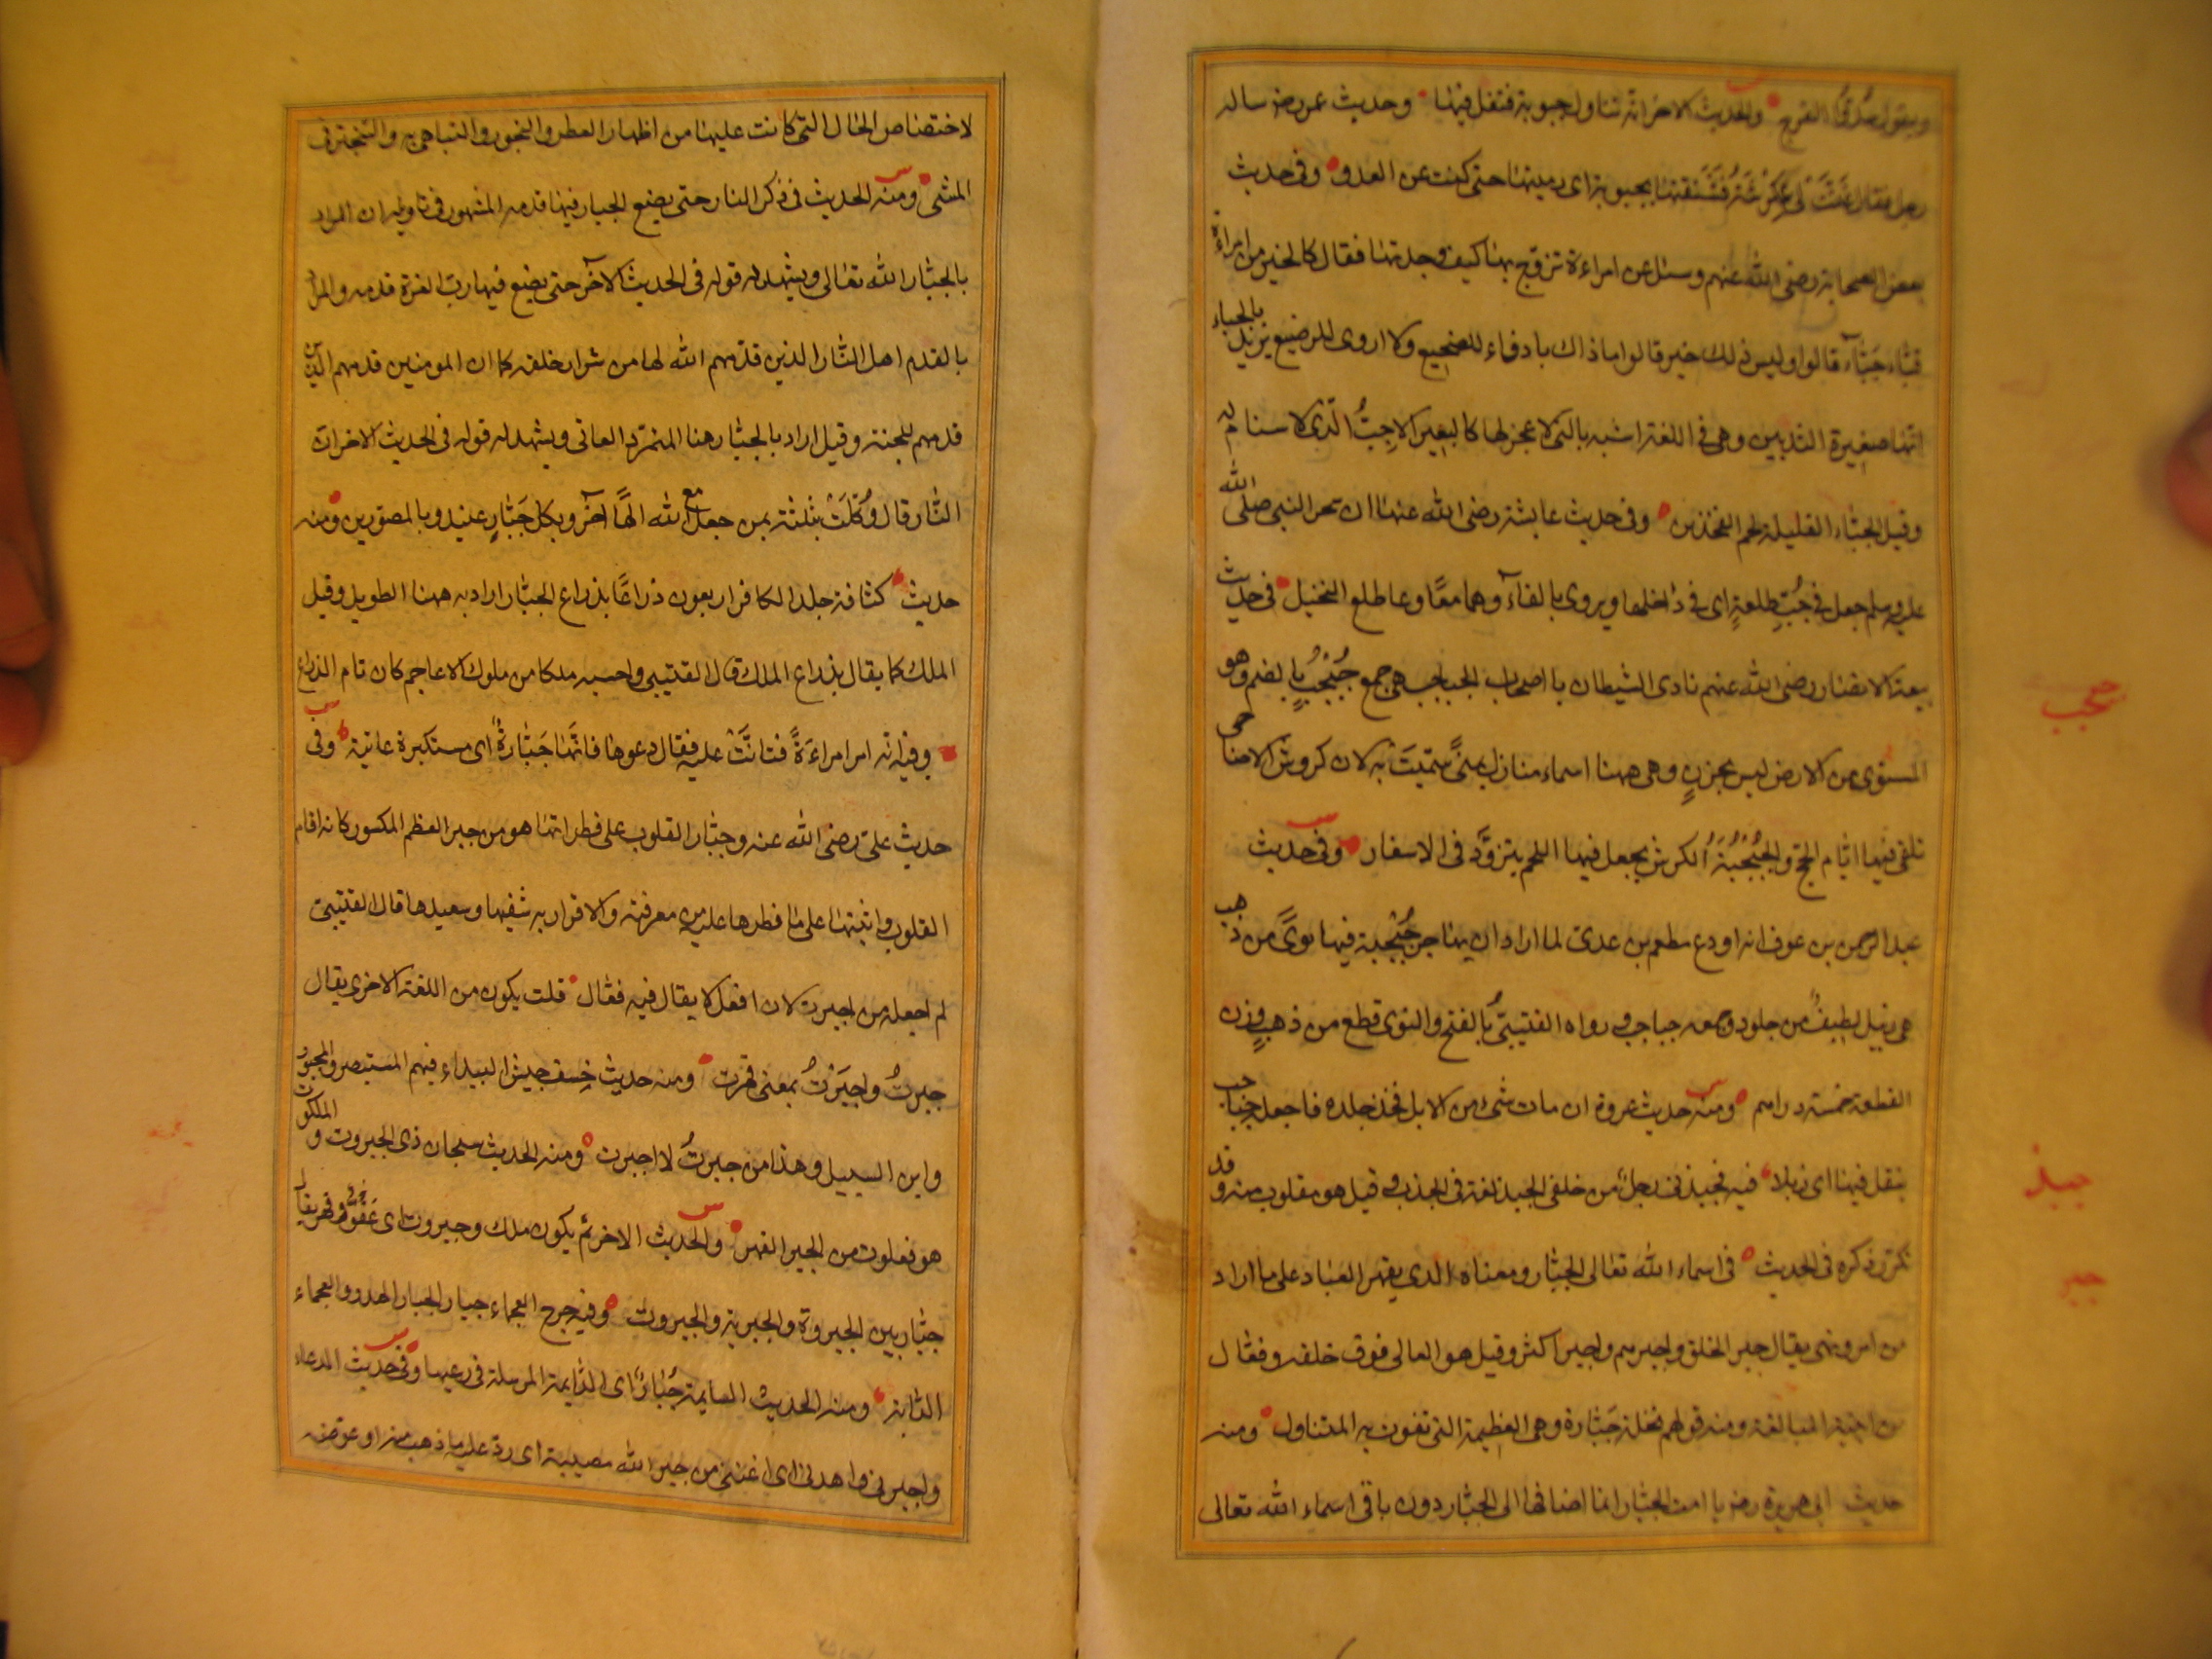 ويقول خذوا الفرج والحديث الاخر انه تناول جبوبة فتفل فيها وحديث عمر رضه ساله
رجل فقال عنت لى عكرشة فشنقتها بجبوبة اى رميتها حتى كفت عن العدو وفى حديث
بعض الصحابة رضى الله عنهم وسئل عن امراءة تزوج بها كيف وجدتها فقال كالخير من امراءة
قباء جباء قالوا اوليس ذلك خير قالوا ما ذاك بادفاء للضجيع ولا اروى للرضيع يريد بالجباء
انها صغيرة الثديين وهى فى اللغة اشبه بالتى لا عجز لها كالبعير الاجب الذى لا سنام له
وقيل الجباء القليلة لحم الفخذين وفى حديث عايشة رضى الله عنها ان سحر النبى صلى الله
عليه وسلم جعل فى جب طلعة اى فى داخلها ويروى بالفاء وهما معا وعا طلع النخيل فى حديث
بيعة الانصار رضى الله عنهم نادى الشيطان يا اصحاب الجباجب هى جمع جبجب بالضم وهو
المستوى من الارض ليس بحزن وهى ههنا اسماء منازل بمنى سميت به لان كروش الاضاحى
تلقى فيها ايام الحج والجبجبة الكرش يجعل فيها اللحم يتزود فى الاسفار وفى حديث
عبد الرحمن بن عوف انه اودع مطعم بن عدى لما اراد ان يهاجر جبجبة فيها نوى من ذهب
هى زبيل لطيف من جلود وجمعه جباجب ورواه القتيبى بالفتح والنوى قطع من ذهب وزن
القطعة خمسة دراهم ومنه حديث عروة ان مات شىء من الابل فخذ جلده فاجعله جباجب
ينقل فيها اى زبلا فيه فجبذنى رجل من خلفى الجبذ لغة فى الجذب وقيل هو مقلوب منه وقد
تكرر ذكره فى الحديث فى اسماء الله تعالى الجبار ومعناه الذى يقهر العباد على ما اراد
من امر ونهى يقال جبر الخلق واجبرهم واجبر اكثر وقيل هو العالى فوق خلقه وفعال
من ابنية المبالغة ومنه قولهم نخلة جبارة وهى العظيمة التى تفوت يد المتناول ومنه
حديث ابى هريرة رضه يا امة الجبار انما اضافها الى الجبار دون باقى اسماء الله تعالى
جبجب
جبذ
جبر
لاختصاص الحال التى كانت عليها من اظهار العطر والبخور والتباهى به والتبختر فى
المشى ومنه الحديث فى ذكر النار حتى يضع الجبار فيها قدمه المشهور فى تاويله ان المراد
بالجبار الله تعالى ويشهد له قوله فى الحديث الاخر حتى يضع فيها رب العزة قدمه والمراد
بالقدم اهل النار الذين قدمهم الله لها من شرار خلقه كما ان المومنين قدمهم الذين
قدمهم للجنة وقيل اراد بالجبار هنا المتمرد العاتى ويشهد له قوله فى الحديث الاخر ان
النار قال وكلت بثلثة بمن جعل مع الله الها اخر وبكل جبار عنيد وبالمصورين ومنه
حديث كثافة جلد الكافر اربعون ذراعا بذراع الجبار اراد به ههنا الطويل وقيل
الملك كما يقال بذراع الملك قال القتيبى واحسبه ملكا من ملوك الاعاجم كان تام الذراع
وفيه انه امر امراءة فتابت عليه فقال دعوها فانها جبارة اى مستكبرة عاتية وفى
حديث على رضى الله عنه وجبار القلوب على فطراتها هو من جبر العظم المكسور كانه اقام
القلوب واثبتها على ما فطرها عليه من معرفته والاقرار به شقيها وسعيدها قال القتيبى
لم اجعله من اجبرت لان افعل لا يقال فيه فعال قلت يكون من اللغة الاخرى يقال
جبرت واجبرت بمعنى قهرت ومنه حديث خسف جيش البيداء فيهم المستبصر والمجبور
وابن السبيل وهذا من جبرت لا اجبرت ومنه الحديث سبحان ذى الجبروت والملكوت
هو فعلوت من الجبر القهر والحديث الاخر ثم يكون ملك وجبروت اى عتو وقهر يقال
جبار بين الجبروة والجبرية والجبروت وفيه جرح العجماء جبار الجبار الهدر والعجماء
الدابة ومنه الحديث السايمة جبار اى الدابة المرسلة فى رعيها وفى حديث الدعاء
واجبرنى واهدنى اى اغننى من جبر الله مصيبته اى رد عليه ما ذهب منه او عوضه